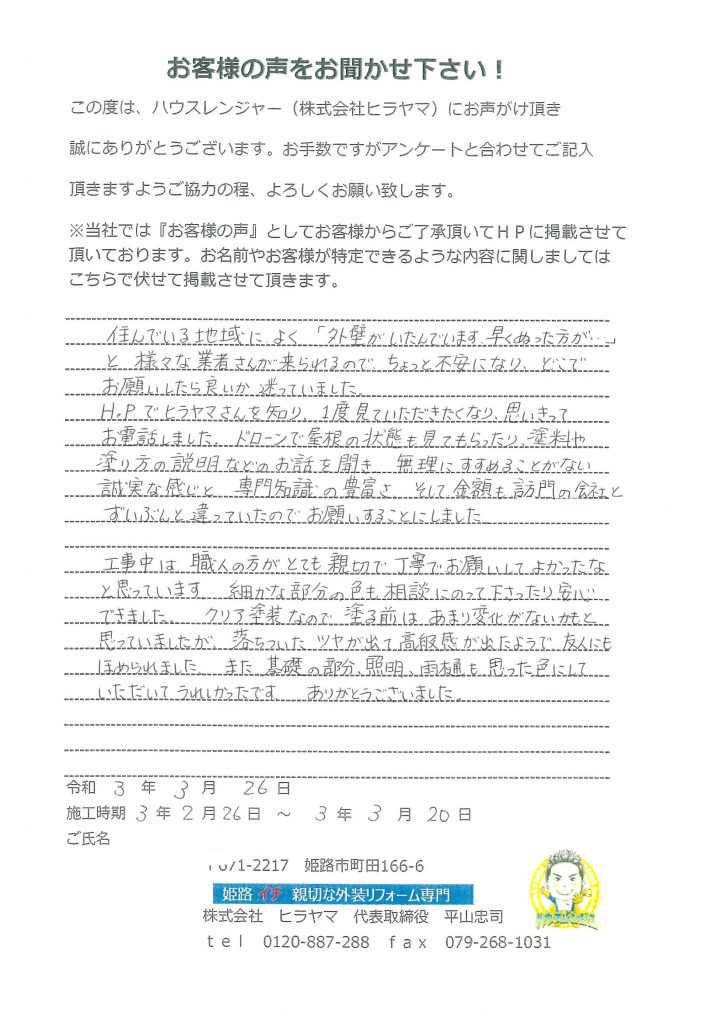 お客様の声をお聞かせ下さい！
この度は、ハウスレンジャー（株式会社ヒラヤマ）にお声がけ頂き
誠にありがとうございます。お手数ですがアンケートと合わせてご記入
頂きますようご協力の程、よろしくお願い致します。
※当社では『お客様の声』としてお客様からご了承頂いてＨＰに掲載させて
頂いております。お名前やお客様が特定できるような内容に関しましては
こちらで伏せて掲載させて頂きます。
住んでいる地域に よく 「外壁がいたんでいます、早くぬった方が…」
と 様々な業者さんが来られるので、ちょっと不安になり、どこで
お願いしたら良いか 迷っていました。
H.P でヒラヤマさんを知り、1度見ていただきたくなり、思いきって
お電話しました。ドローンで屋根の状態も見てもらったり、塗料や
塗り方の説明などのお話を聞き 無理にすすめることがない
誠実な感じと 専門知識の豊富さ そして金額も訪門の会社と
ずいぶんと違っていたのでお願いすることにしました
工事中は 職人の方がとても親切で丁寧でお願いしてよかったな
と思っています 細かな部分の色も相談にのって下さったり安心
できました。 クリア塗装なので、塗る前はあまり変化がないかもと
思っていましたが、落ちついたツヤが出て高級感が出たようで友人にも
ほめられました。また基礎の部分、照明、雨樋も思った色にして
いただいてうれしかったです ありがとうございました。
令和 3 年 3 月 26 日
施工時期 3 年 2 月 26 日 ～ 3 年 3 月 20 日
ご氏名
671-2217 姫路市町田166-6
姫路 イチ 親切な外装リフォーム専門
株式会社 ヒラヤマ 代表取締役 平山忠司
ｔｅｌ 0120-887-288 ｆａｘ 079-268-1031